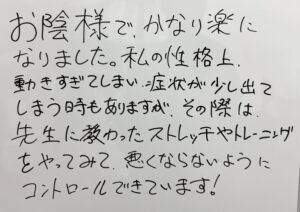 お陰様で、かなり楽に
なりました。私の性格上、
動きすぎてしまい、症状が少し出て
しまう時もありますが、その際は、
先生に教わったストレッチやトレーニング
をやってみて、悪くならないように
コントロールできています!